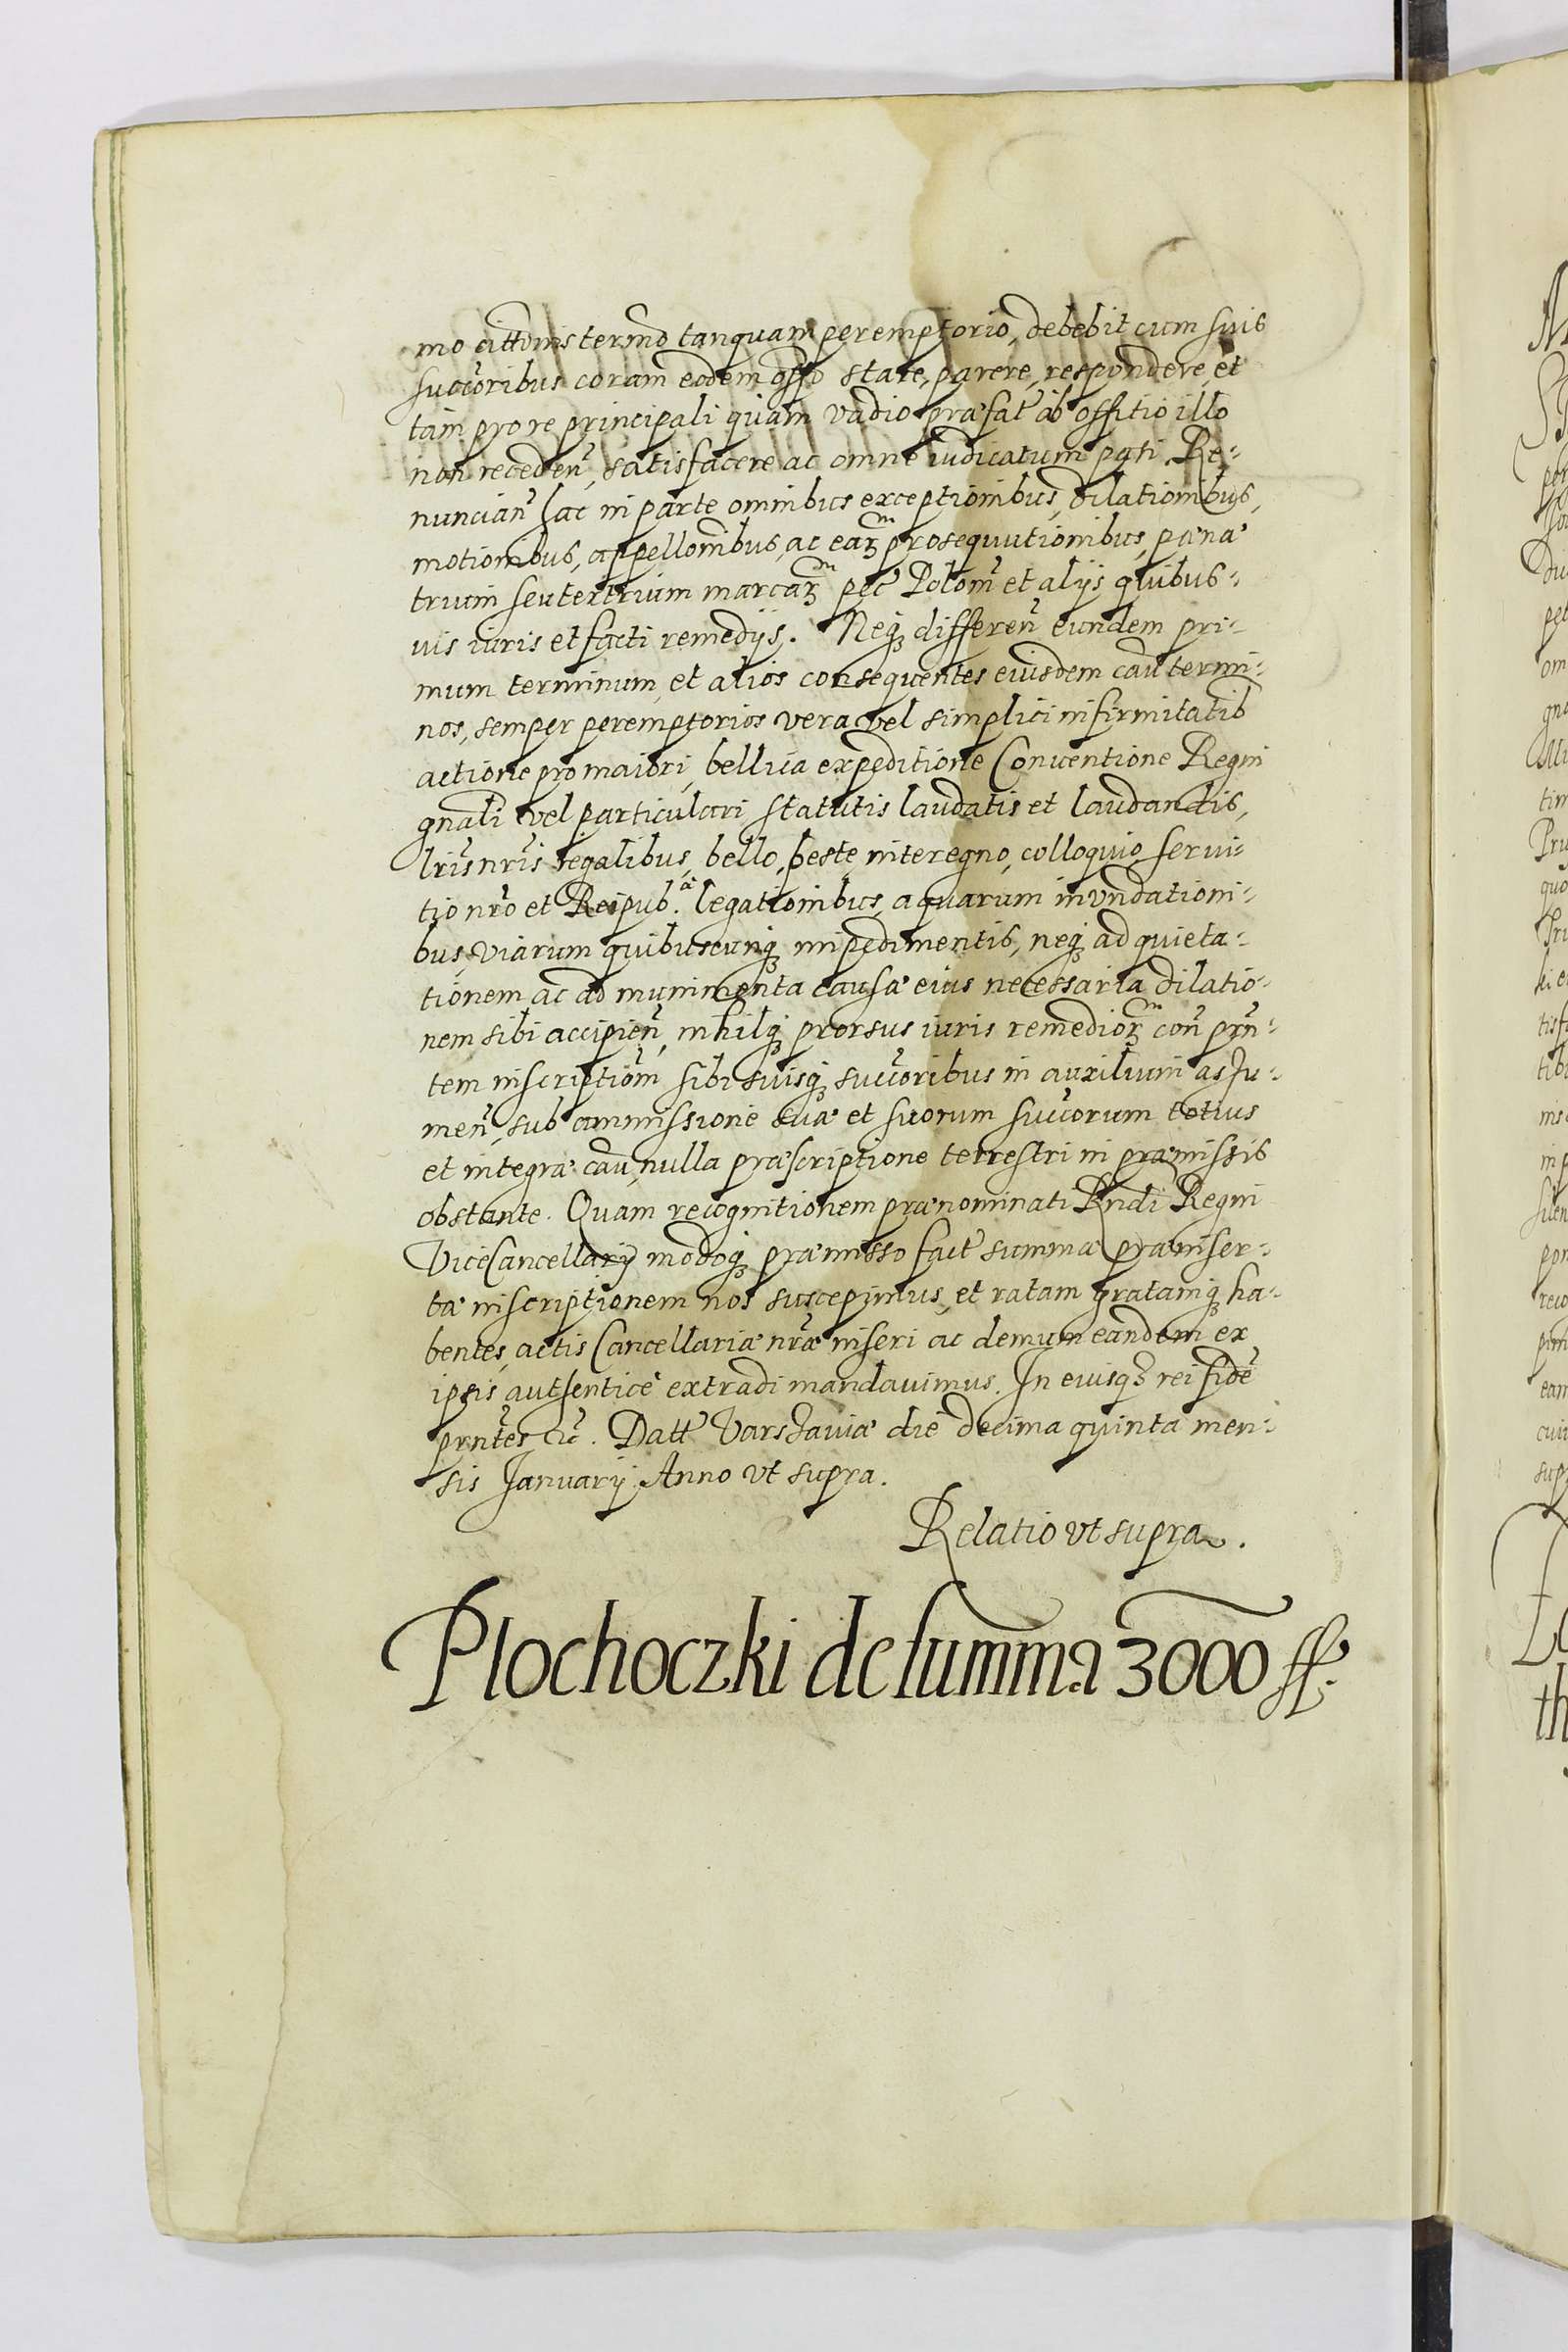 mo citt͠onis termo tanquam peremptorio, debebit cum suis
succ͠oribus coram eodem offo stare, parere, respondere, et
tam pro re principali quam vadio præfat̃ ab offitio illo
non receden̄, satisfacere ac omne iudicatum pati. Re-
nuncian̄ hac in parte omnibus exceptionibus, dilationibus,
motionibus, appellonibus, ac earꝝ prosequutionibus, pœna
trium seu tertrium marcarꝝ pec̃ Polom̃ et alijs quibus-
vis iuris et facti remedijs. Neqꝫ differen̄ eundem pri-
mum terminum, et alios consequentes eiusdem cau͠ termi-
nos, semper peremptorios vera vel simplici infirmitatib
actione pro maiori, bellica expeditione Conventione Regni
gn͠ali vel particulari statutis laudatis et laudandis,
lr͠is nr͠is regalibus, bello, peste, interegno, colloquio, servi-
tio nr͠o et Reipub.ᵃᵉ legationibus, aquarum inundationi-
bus, viarum quibuscunqꝫ impedimentis, neqꝫ ad quieta-
tionem ac ad munimenta causæ eius necessaria dilatio-
nem sibi accipien̄, nihilqꝫ prorsus iuris remediorꝝ con͠ prn͠-
tem inscription͠ sibi suisqꝫ succ͠oribus in auxilium assu-
men̄, sub ammissione suæ et suorum succ͠orum totius
et integræ cau͠, nulla præscriptione terrestri in præmissis
obstante. Quam recognitionem prænominati Rndi Regni
ViceCancellarij modoqꝫ præmisso fact̃ summæ præinser-
tæ inscriptionem nos suscepimus, et ratam gratamqꝫ ha-
bentes, actis Cancellariæ nr͠æ inseri ac demum eandem ex
ipsis autsentice extradi mandavimus. In cuiusqꝫ rei fidẽ
prn͠tes &c̃. Datt̃ Varsaviæ die decima quinta men-
sis Januarij Anno ut supra.
Relatio ut supra.
Plochoczki de summa 3000 ff.